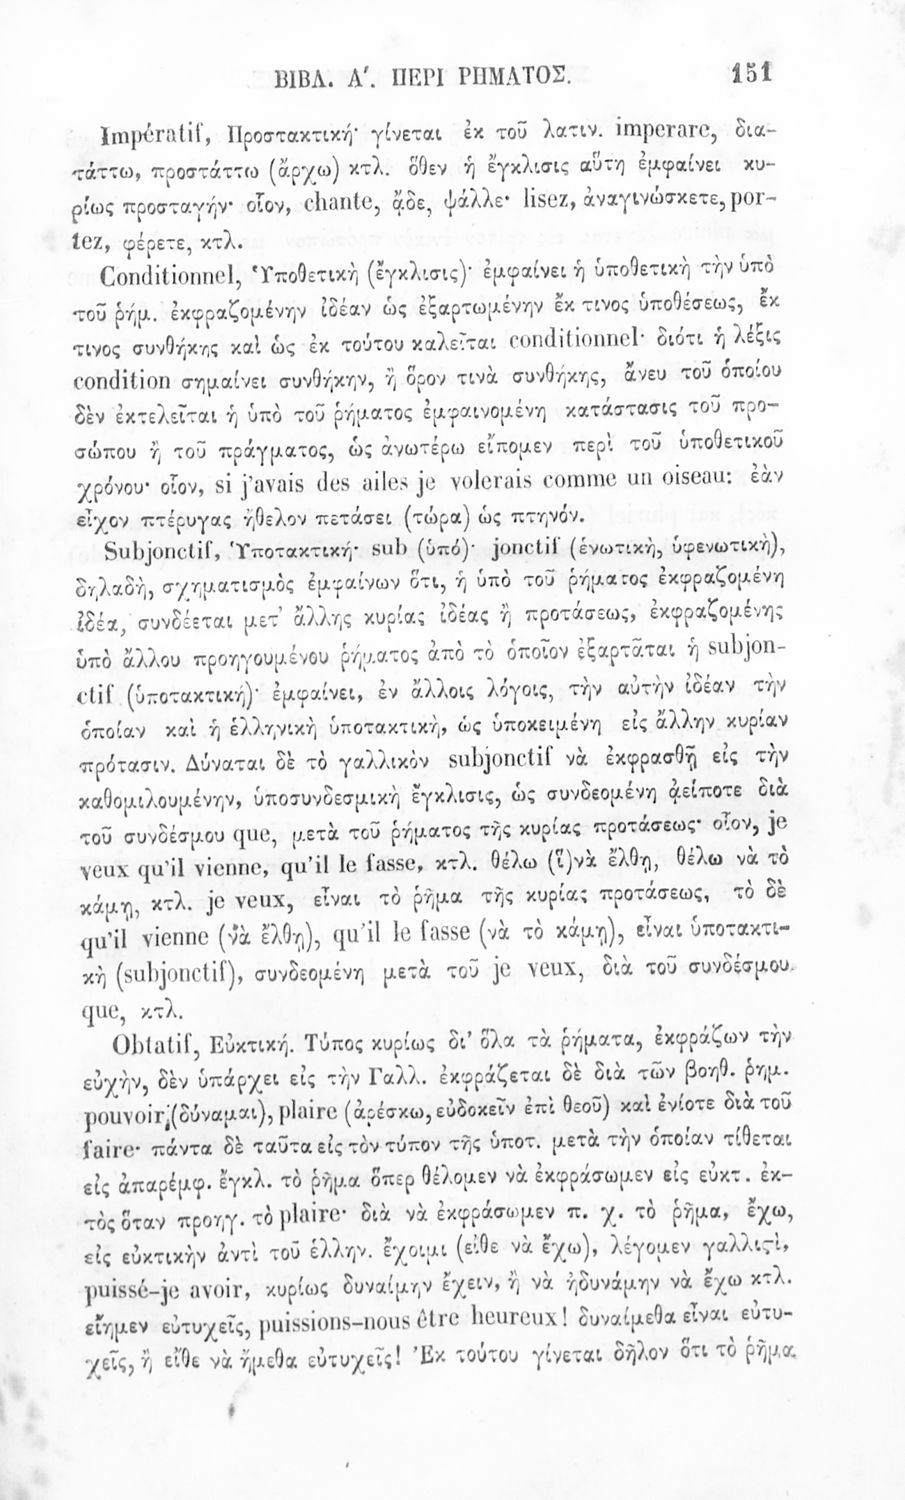 ΒΙΒΛ. Α΄. ΠΕΡΙ ΡΗΜΑΤΟΣ. 151
Impératif, Προστακτική· γίνεται ἐκ τοῦ λατιν. imperare, δια-
τάττω, προστάττω (ἄρχω) κτλ. ὅθεν ἡ ἔγκλισις αὕτη ἐμφαίνει κυ-
ρίως προσταγήν· οἷον, chante, ᾆδε, ψάλλε· lisez, ἀναγινώσκετε, por-
tez, φέρετε, κτλ.
Conditionnel, Ὑποθετικὴ (ἔγκλισις)· ἐμφαίνει ἡ ὑποθετικὴ τὴν ὑπὸ
τοῦ ῥήμ. ἐκφραζομένην ἰδέαν ὡς ἐξαρτωμένην ἔκ τινος ὑποθέσεως, ἔκ
τινος συνθήκης καὶ ὡς ἐκ τούτου καλεῖται conditionnel· διότι ἡ λέξις
condition σημαίνει συνθήκην, ἢ ὅρον τινὰ συνθήκης, ἄνευ τοῦ ὁποίου
δὲν ἐκτελεῖται ἡ ὑπὸ τοῦ ῥήματος ἐμφαινομένη κατάστασις τοῦ προ-
σώπου ἢ τοῦ πράγματος, ὡς ἀνωτέρω εἴπομεν περὶ τοῦ ὑποθετικοῦ
χρόνου· οἷον, si j'avais des ailes je volerais comme un oiseau: ἐὰν
εἶχον πτέρυγας ἤθελον πετάσει (τώρα) ὡς πτηνόν.
Subjonctif, Ὑποτακτική· sub (ὑπό)· jonctif (ἑνωτικὴ, ὑφενωτικὴ),
δηλαδὴ, σχηματισμὸς ἐμφαίνων ὅτι, ἡ ὑπὸ τοῦ ῥήματος ἐκφραζομένη
ἰδέα, συνδέεται μετ' ἄλλης κυρίας ἰδέας ἢ προτάσεως, ἐκφραζομένης
ὑπὸ ἄλλου προηγουμένου ῥήματος ἀπὸ τὸ ὁποῖον ἐξαρτᾶται ἡ subjon-
ctif (ὑποτακτική)· ἐμφαίνει, ἐν ἄλλοις λόγοις, τὴν αὐτὴν ἰδέαν τὴν
ὁποίαν καὶ ἡ ἑλληνικὴ ὑποτακτικὴ, ὡς ὑποκειμένη εἰς ἄλλην κυρίαν
πρότασιν. Δύναται δὲ τὸ γαλλικὸν subjonctif νὰ ἐκφρασθῇ εἰς τὴν
καθομιλουμένην, ὑποσυνδεσμικὴ ἔγκλισις, ὡς συνδεομένη ἀείποτε διὰ
τοῦ συνδέσμου que, μετὰ τοῦ ῥήματος τῆς κυρίας προτάσεως· οἷον, je
veux qu'il vienne, qu'il le fasse, κτλ. θέλω (ἵ)νὰ ἔλθῃ, θέλω νὰ τὸ
κάμῃ, κτλ. je veux, εἶναι τὸ ῥῆμα τῆς κυρίας προτάσεως, τὸ δὲ
qu'il vienne (νὰ ἔλθῃ), qu'il le fasse (νὰ τὸ κάμῃ), εἶναι ὑποτακτι-
κὴ (subjonctif), συνδεομένη μετὰ τοῦ je veux, διὰ τοῦ συνδέσμου
que, κτλ.
Obtatif, Εὐκτική. Τύπος κυρίως δι' ὅλα τὰ ῥήματα, ἐκφράζων τὴν
εὐχὴν, δὲν ὑπάρχει εἰς τὴν Γαλλ. ἐκφράζεται δὲ διὰ τῶν βοηθ. ῥημ.
pouvoir (δύναμαι), plaire (ἀρέσκω, εὐδοκεῖν ἐπὶ θεοῦ) καὶ ἐνίοτε διὰ τοῦ
faire· πάντα δὲ ταῦτα εἰς τὸν τύπον τῆς ὑποτ. μετὰ τὴν ὁποίαν τίθεται
εἰς ἀπαρέμφ. ἔγκλ. τὸ ῥῆμα ὅπερ θέλομεν νὰ ἐκφράσωμεν εἰς εὐκτ. ἐκ-
τὸς ὅταν προηγ. τὸ plaire· διὰ νὰ ἐκφράσωμεν π. χ. τὸ ῥῆμα, ἔχω,
εἰς εὐκτικὴν ἀντὶ τοῦ ἑλλην. ἔχοιμι (εἴθε νὰ ἔχω), λέγομεν γαλλιστὶ,
puissé-je avoir, κυρίως δυναίμην ἔχειν, ἢ νὰ ἠδυνάμην νὰ ἔχω κτλ.
εἴημεν εὐτυχεῖς, puissions-nous être heureux! δυναίμεθα εἶναι εὐτυ-
χεῖς, ἢ εἴθε νὰ ἤμεθα εὐτυχεῖς! Ἐκ τούτου γίνεται δῆλον ὅτι τὸ ῥῆμα